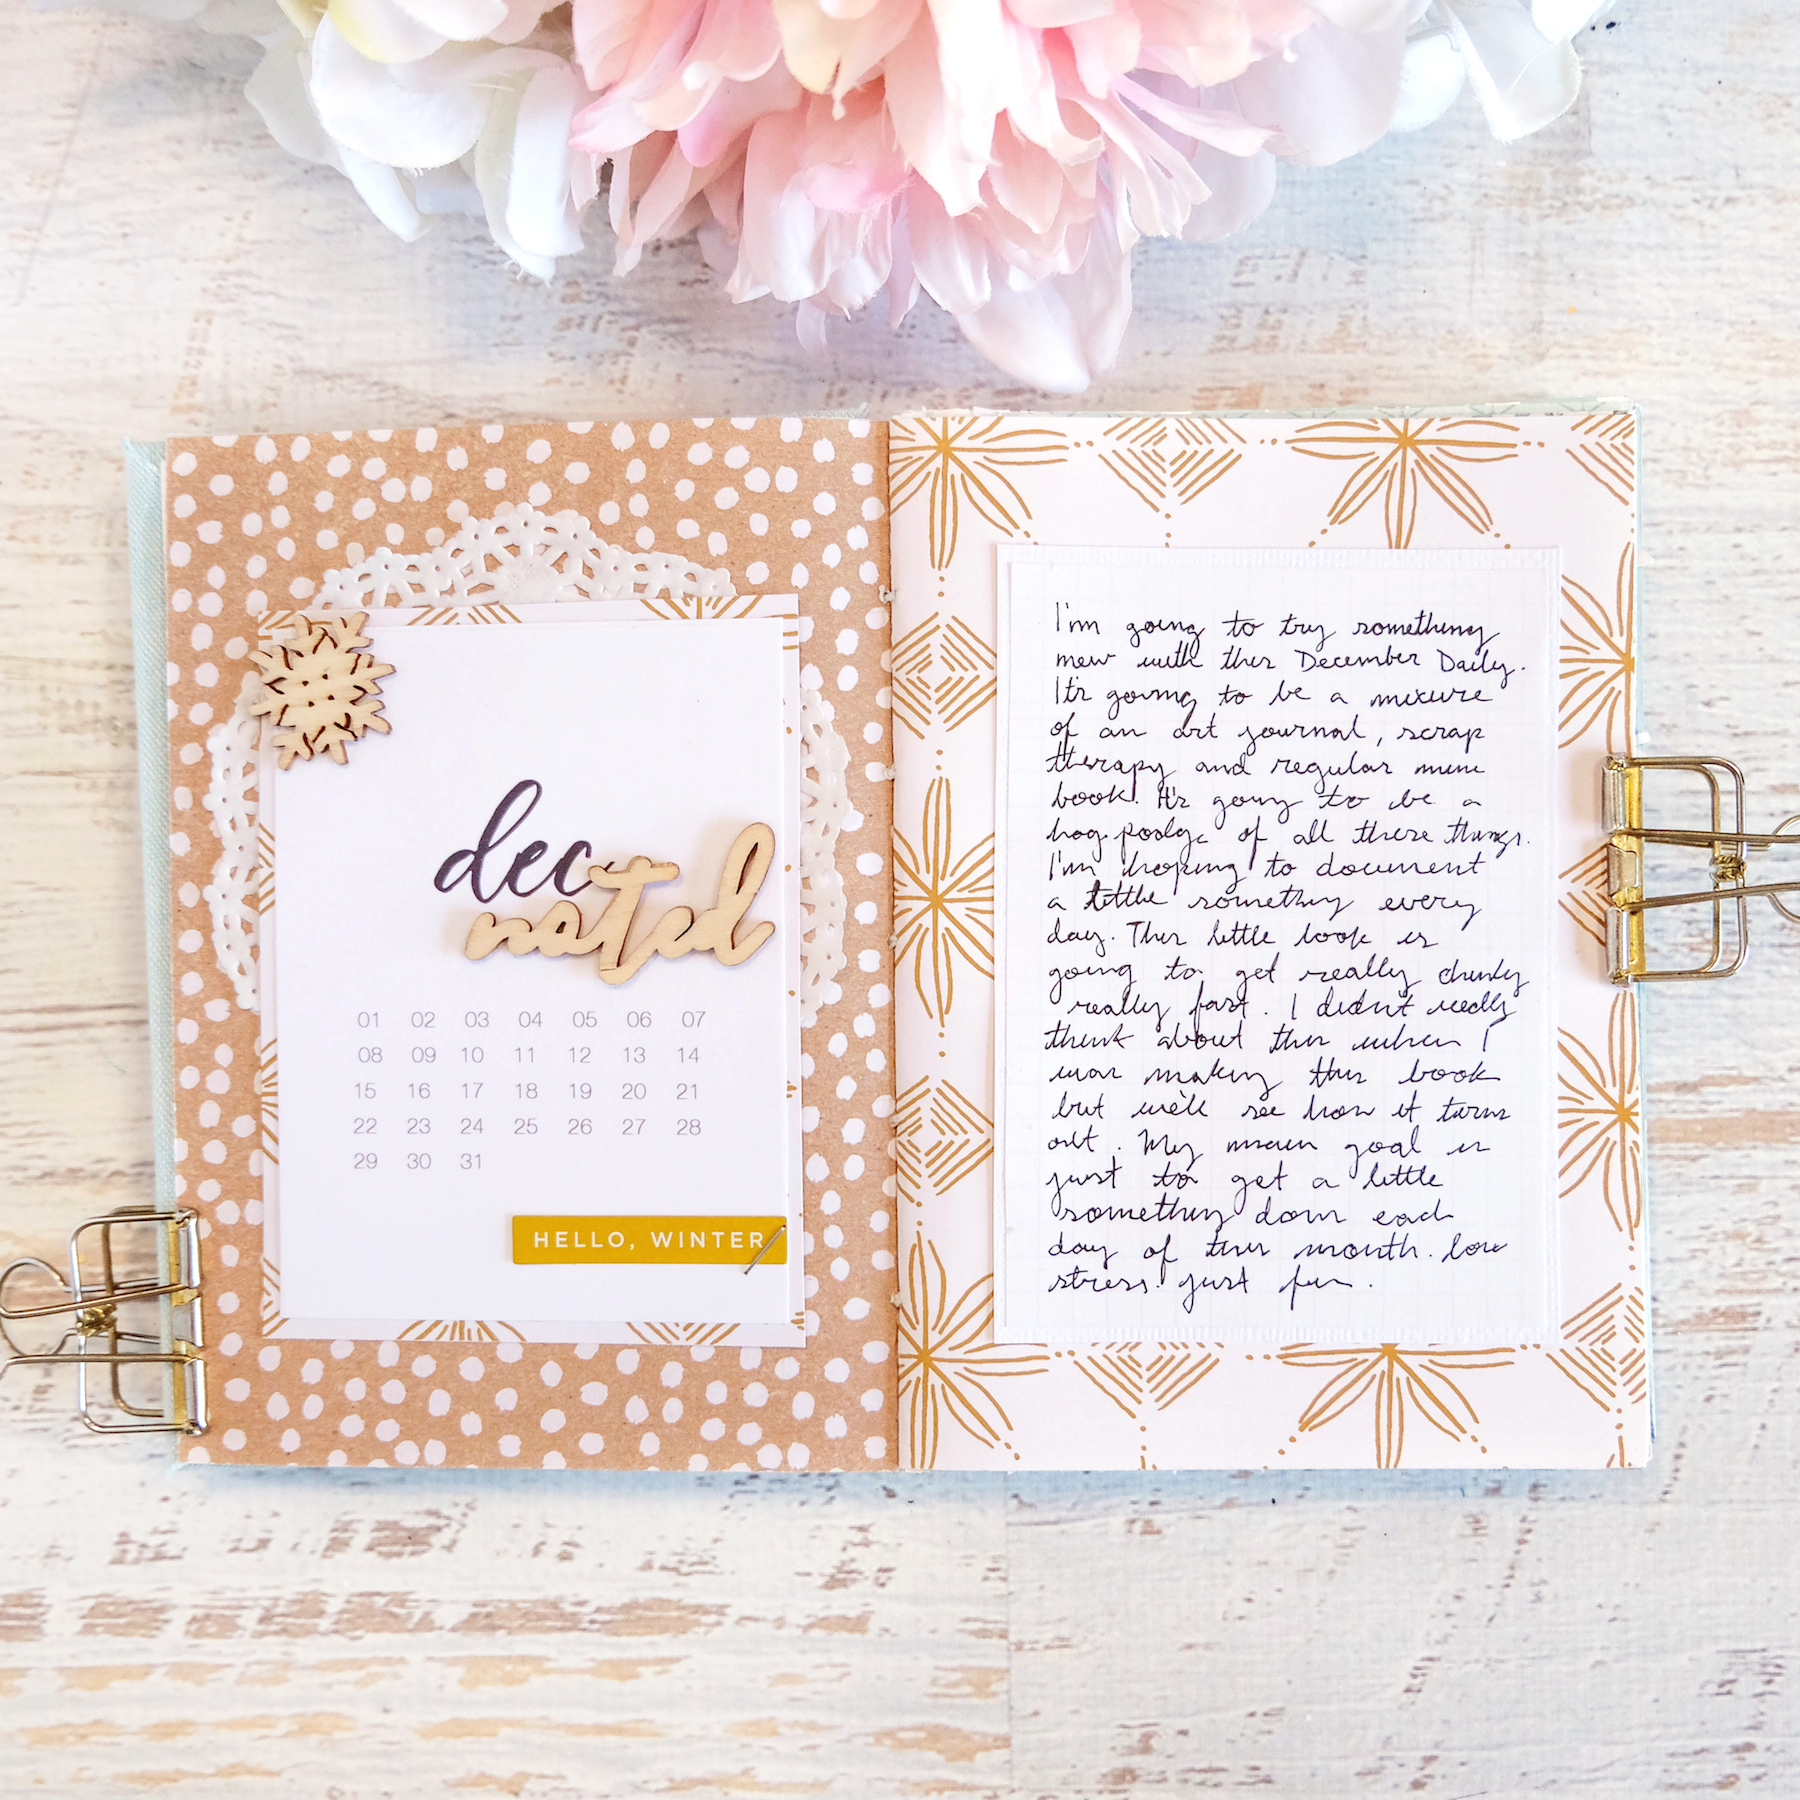 dec
noted
01 02 03 04 05 06 07
08 09 10 11 12 13 14
15 16 17 18 19 20 21
22 23 24 25 26 27 28
29 30 31
HELLO, WINTER
I'm going to try something
new with this December Daily.
It's going to be a mixure
of an art journal, scrap
therapy and regular mini
book. It's going to be a
hog-podge of all these things.
I'm hoping to document
a little something every
day. This little book is
going to get really chunky
really fast. I didn't really
think about this when I
was making this book
but we'll see how it turns
out. My main goal is
just to get a little
something down each
day of this month. low
stress. just fun.